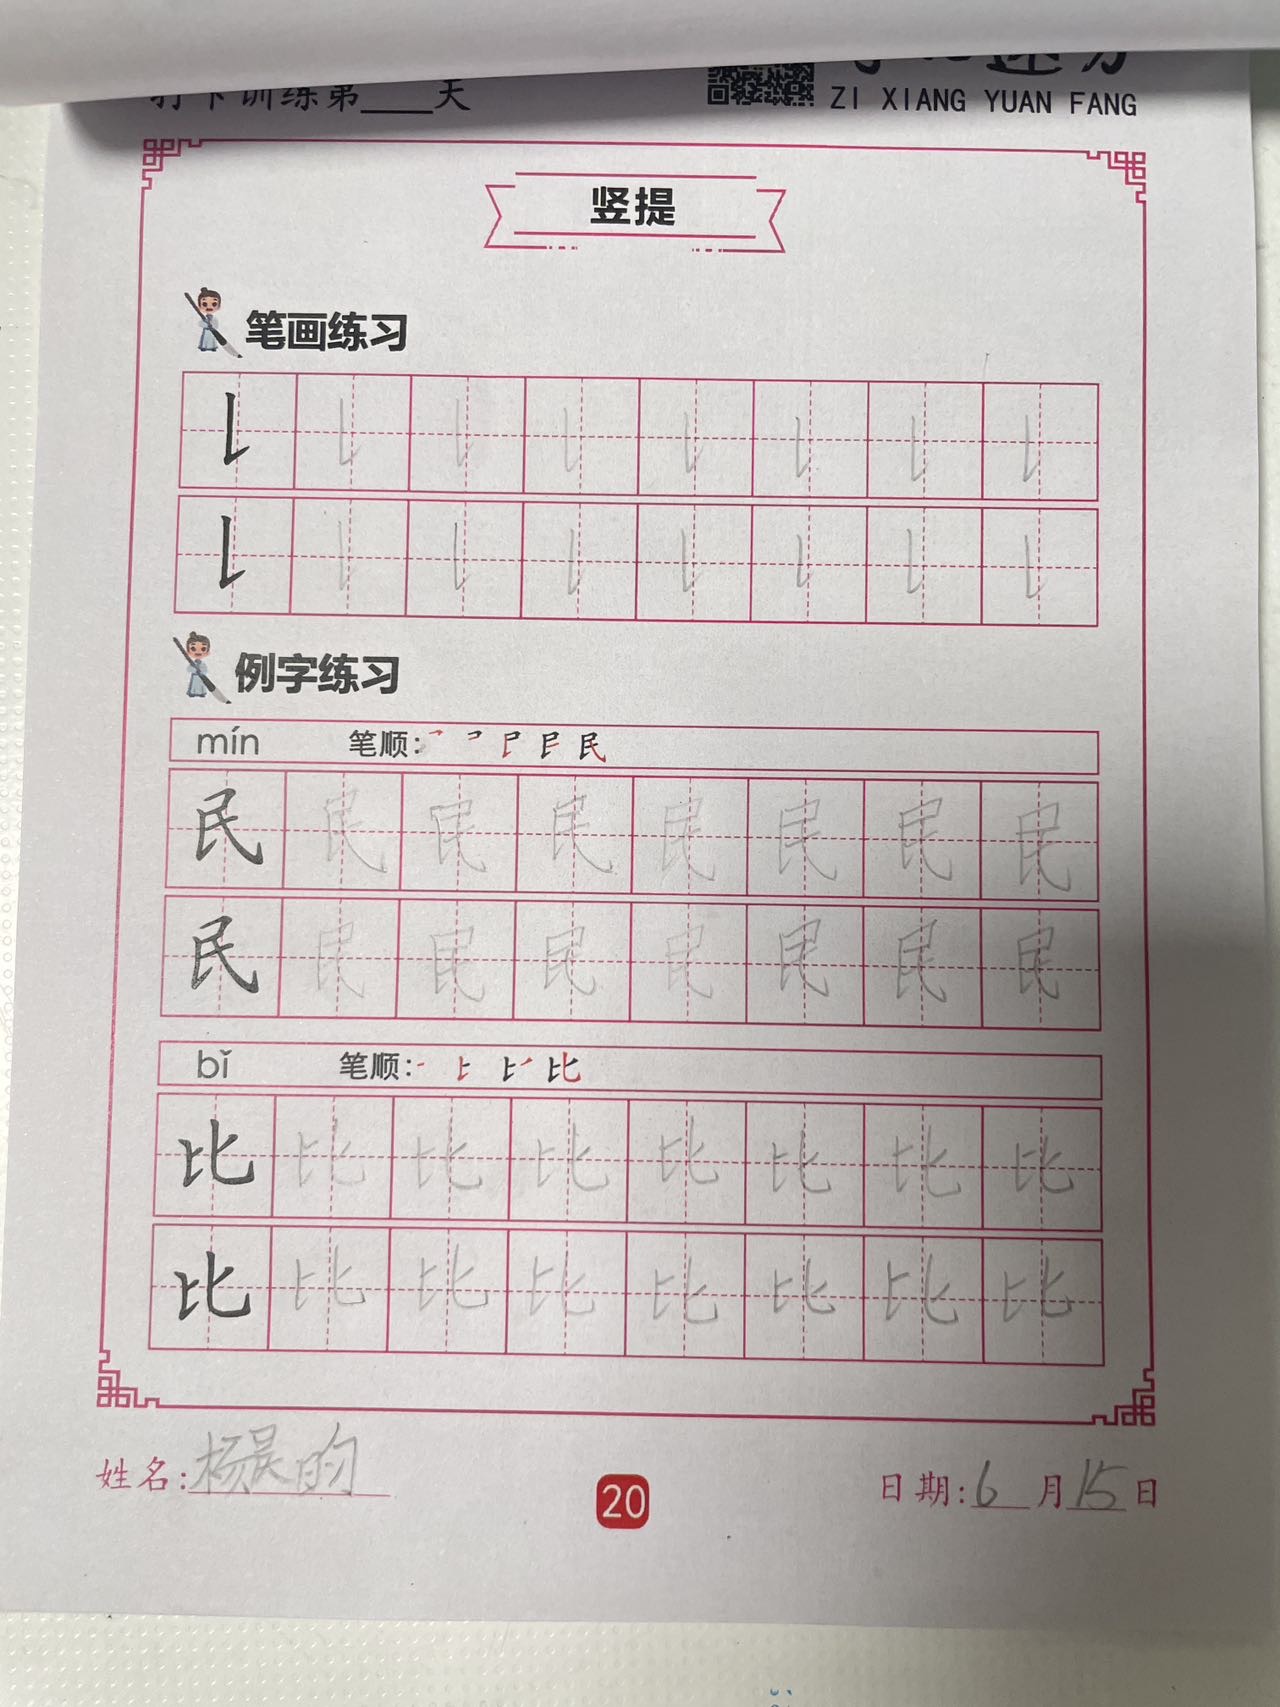 打卡训练第____天
ZI XIANG YUAN FANG
竖提
笔画练习
例字练习
mín 笔顺:
民 民 民 民 民 民 民 民
民 民 民 民 民 民 民 民
bǐ 笔顺:
比 比 比 比 比 比 比 比
比 比 比 比 比 比 比 比
姓名:杨昊昀
20
日期:6月15日